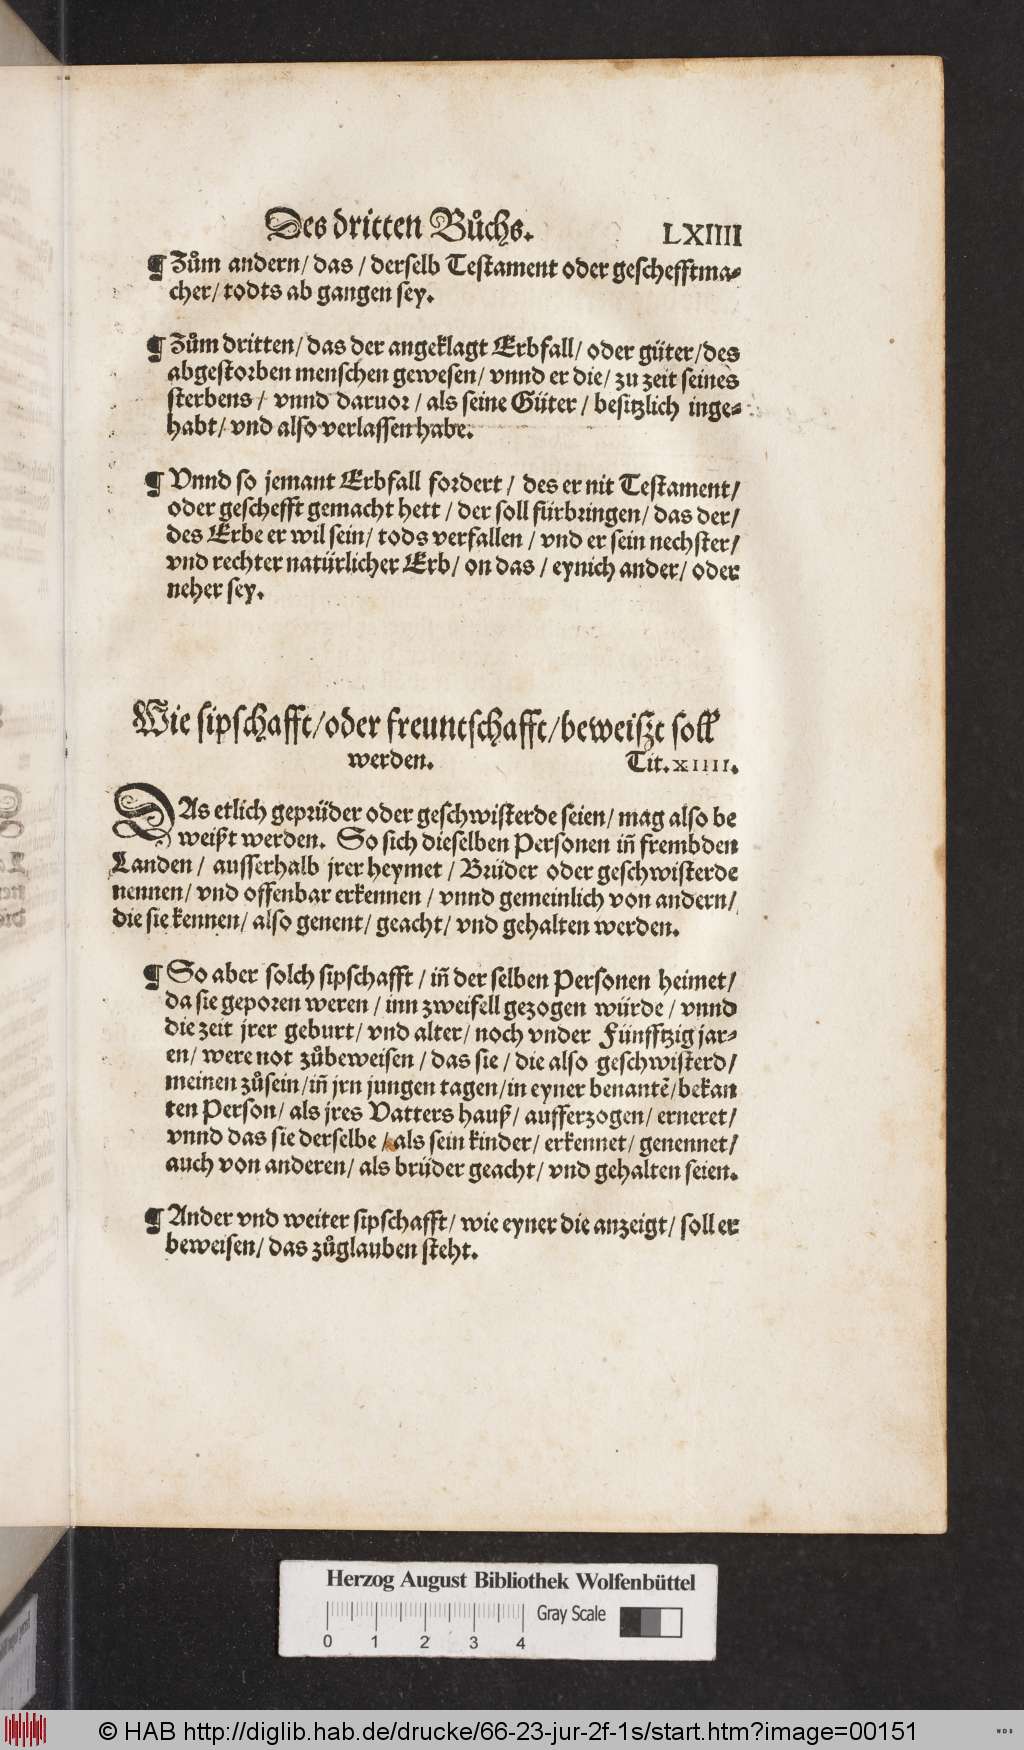 Des dritten Bůchs. LXIIII
¶ Zům andern/ das / derselb Testament oder geschefftma⸗
cher/ todts ab gangen sey.
¶ Zům dritten/ das der angeklagt Erbfall/ oder güter/ des
abgestorben menschen gewesen/ vnnd er die/ zu zeit seines
sterbens / vnnd daruor / als seine Güter / besitzlich inge⸗
habt/ vnd also verlassen habe.
¶ Vnnd so jemant Erbfall fordert / des er nit Testament/
oder geschefft gemacht hett / der soll fürbringen/ das der/
des Erbe er wil sein/ tods verfallen / vnd er sein nechster/
vnd rechter natürlicher Erb/ on das / eynich ander/ oder
neher sey.
Wie sipschafft/oder freuntschafft/beweiszt soll
werden. Tit. XIIII.
DAs etlich geprüder oder geschwisterde seien/ mag also be
weißt werden. So sich dieselben Personen in̄ frembden
Landen / ausserhalb jrer heymet / Brüder oder geschwisterde
nennen/ vnd offenbar erkennen / vnnd gemeinlich von andern/
die sie kennen/ also genent/ geacht/ vnd gehalten werden.
¶ So aber solch sipschafft / in̄ der selben Personen heimet/
da sie geporen weren / inn zweifell gezogen würde / vnnd
die zeit jrer geburt/ vnd alter/ noch vnder Fünfftzig jar⸗
en/ were not zůbeweisen / das sie / die also geschwisterd/
meinen zůsein/ in̄ jrn jungen tagen/ in eyner benantē/ bekan
ten Person/ als jres Vatters hauß/ aufferzogen/ erneret/
vnnd das sie derselbe / als sein kinder/ erkennet/ genennet/
auch von anderen/ als brüder geacht/ vnd gehalten seien.
¶ Ander vnd weiter sipschafft/ wie eyner die anzeigt/ soll er
beweisen/ das zůglauben steht.
Herzog August Bibliothek Wolfenbüttel
Gray Scale
0 1 2 3 4
© HAB http://diglib.hab.de/drucke/66-23-jur-2f-1s/start.htm?image=00151